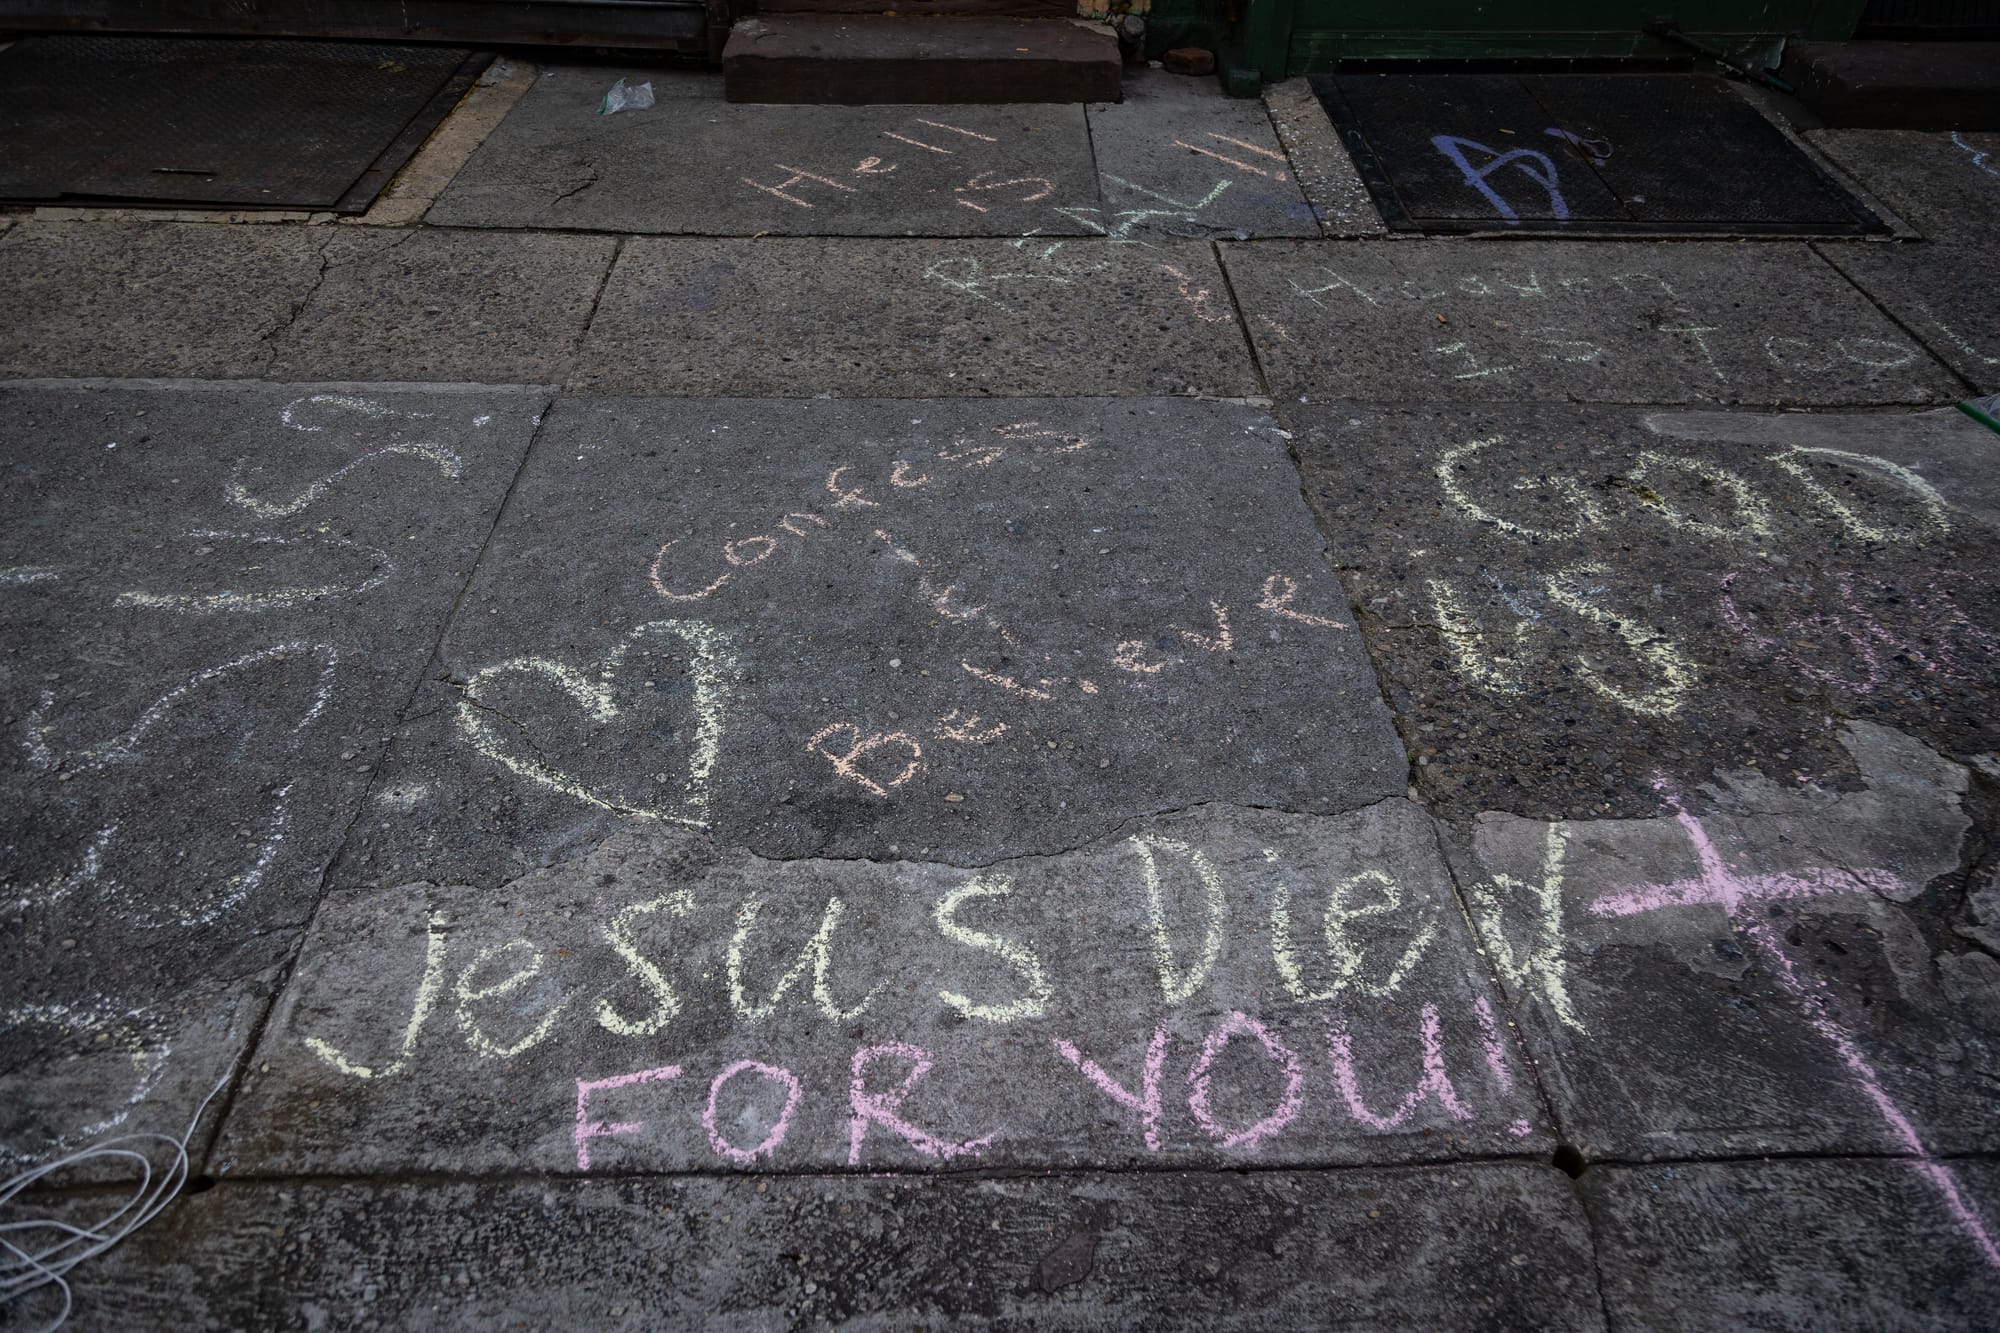 Hell
is
REAL!!
Heaven
is Too
Confess
Believe
GOD
iS
Jesus Died
FOR YOU!